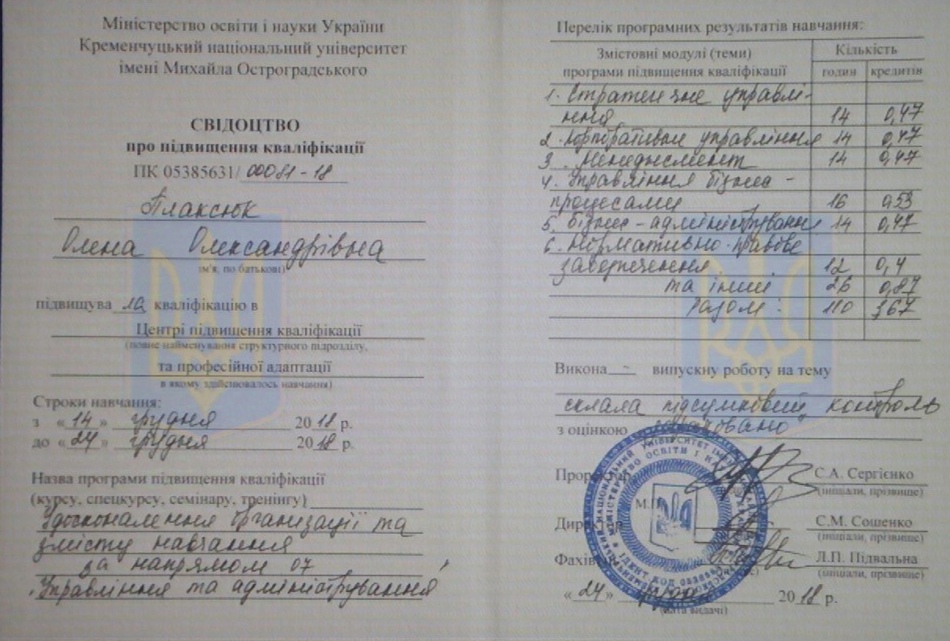 Міністерство освіти і науки України
Кременчуцький національний університет
імені Михайла Остроградського
СВІДОЦТВО
про підвищення кваліфікації
ПК 05385631/ 00081-18
Плаксюк
Олена Олександрівна
ім'я, по батькові)
підвищува ла кваліфікацію в
Центрі підвищення кваліфікації
(повне найменування структурного підрозділу,
та професійної адаптації
в якому здійснювалось навчання)
Строки навчання:
з « 14 » грудня 20 18 р.
до « 24 » грудня 20 18 р.
Назва програми підвищення кваліфікації
(курсу, спецкурсу, семінару, тренінгу)
Удосконалення організації та
змісту навчання
за напрямом 07
"Управління та адміністрування"
Перелік програмних результатів навчання:
Змістовні модулі (теми) Кількість
програми підвищення кваліфікації годин кредитів
1. Стратегічне управлі-
ння 14 0,47
2. Корпоративне управління 14 0,47
3. Менеджмент 14 0,47
4. Управління бізнес-
процесами 16 0,53
5. Бізнес-адміністрування 14 0,47
6. Нормативно-правове
забезпечення 12 0,4
та інші 26 0,87
Разом: 110 3,67
Викона – випускну роботу на тему
склала підсумковий контроль
з оцінкою "зараховано"
С.А. Сергієнко
(ініціали, прізвище)
М.
С.М. Сошенко
(ініціали, прізвище)
Л.П. Підвальна
(ініціали, прізвище)
« 24 » грудня 20 18 р.
(дата видачі)